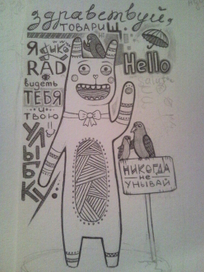 здравствуй,
ТОВАРИЩ
Я дико
RAD
видеть
ТЕБЯ
и
ТВОЮ
УЛЫБКУ
Hello
НИКОГДА
не
УНЫВАЙ